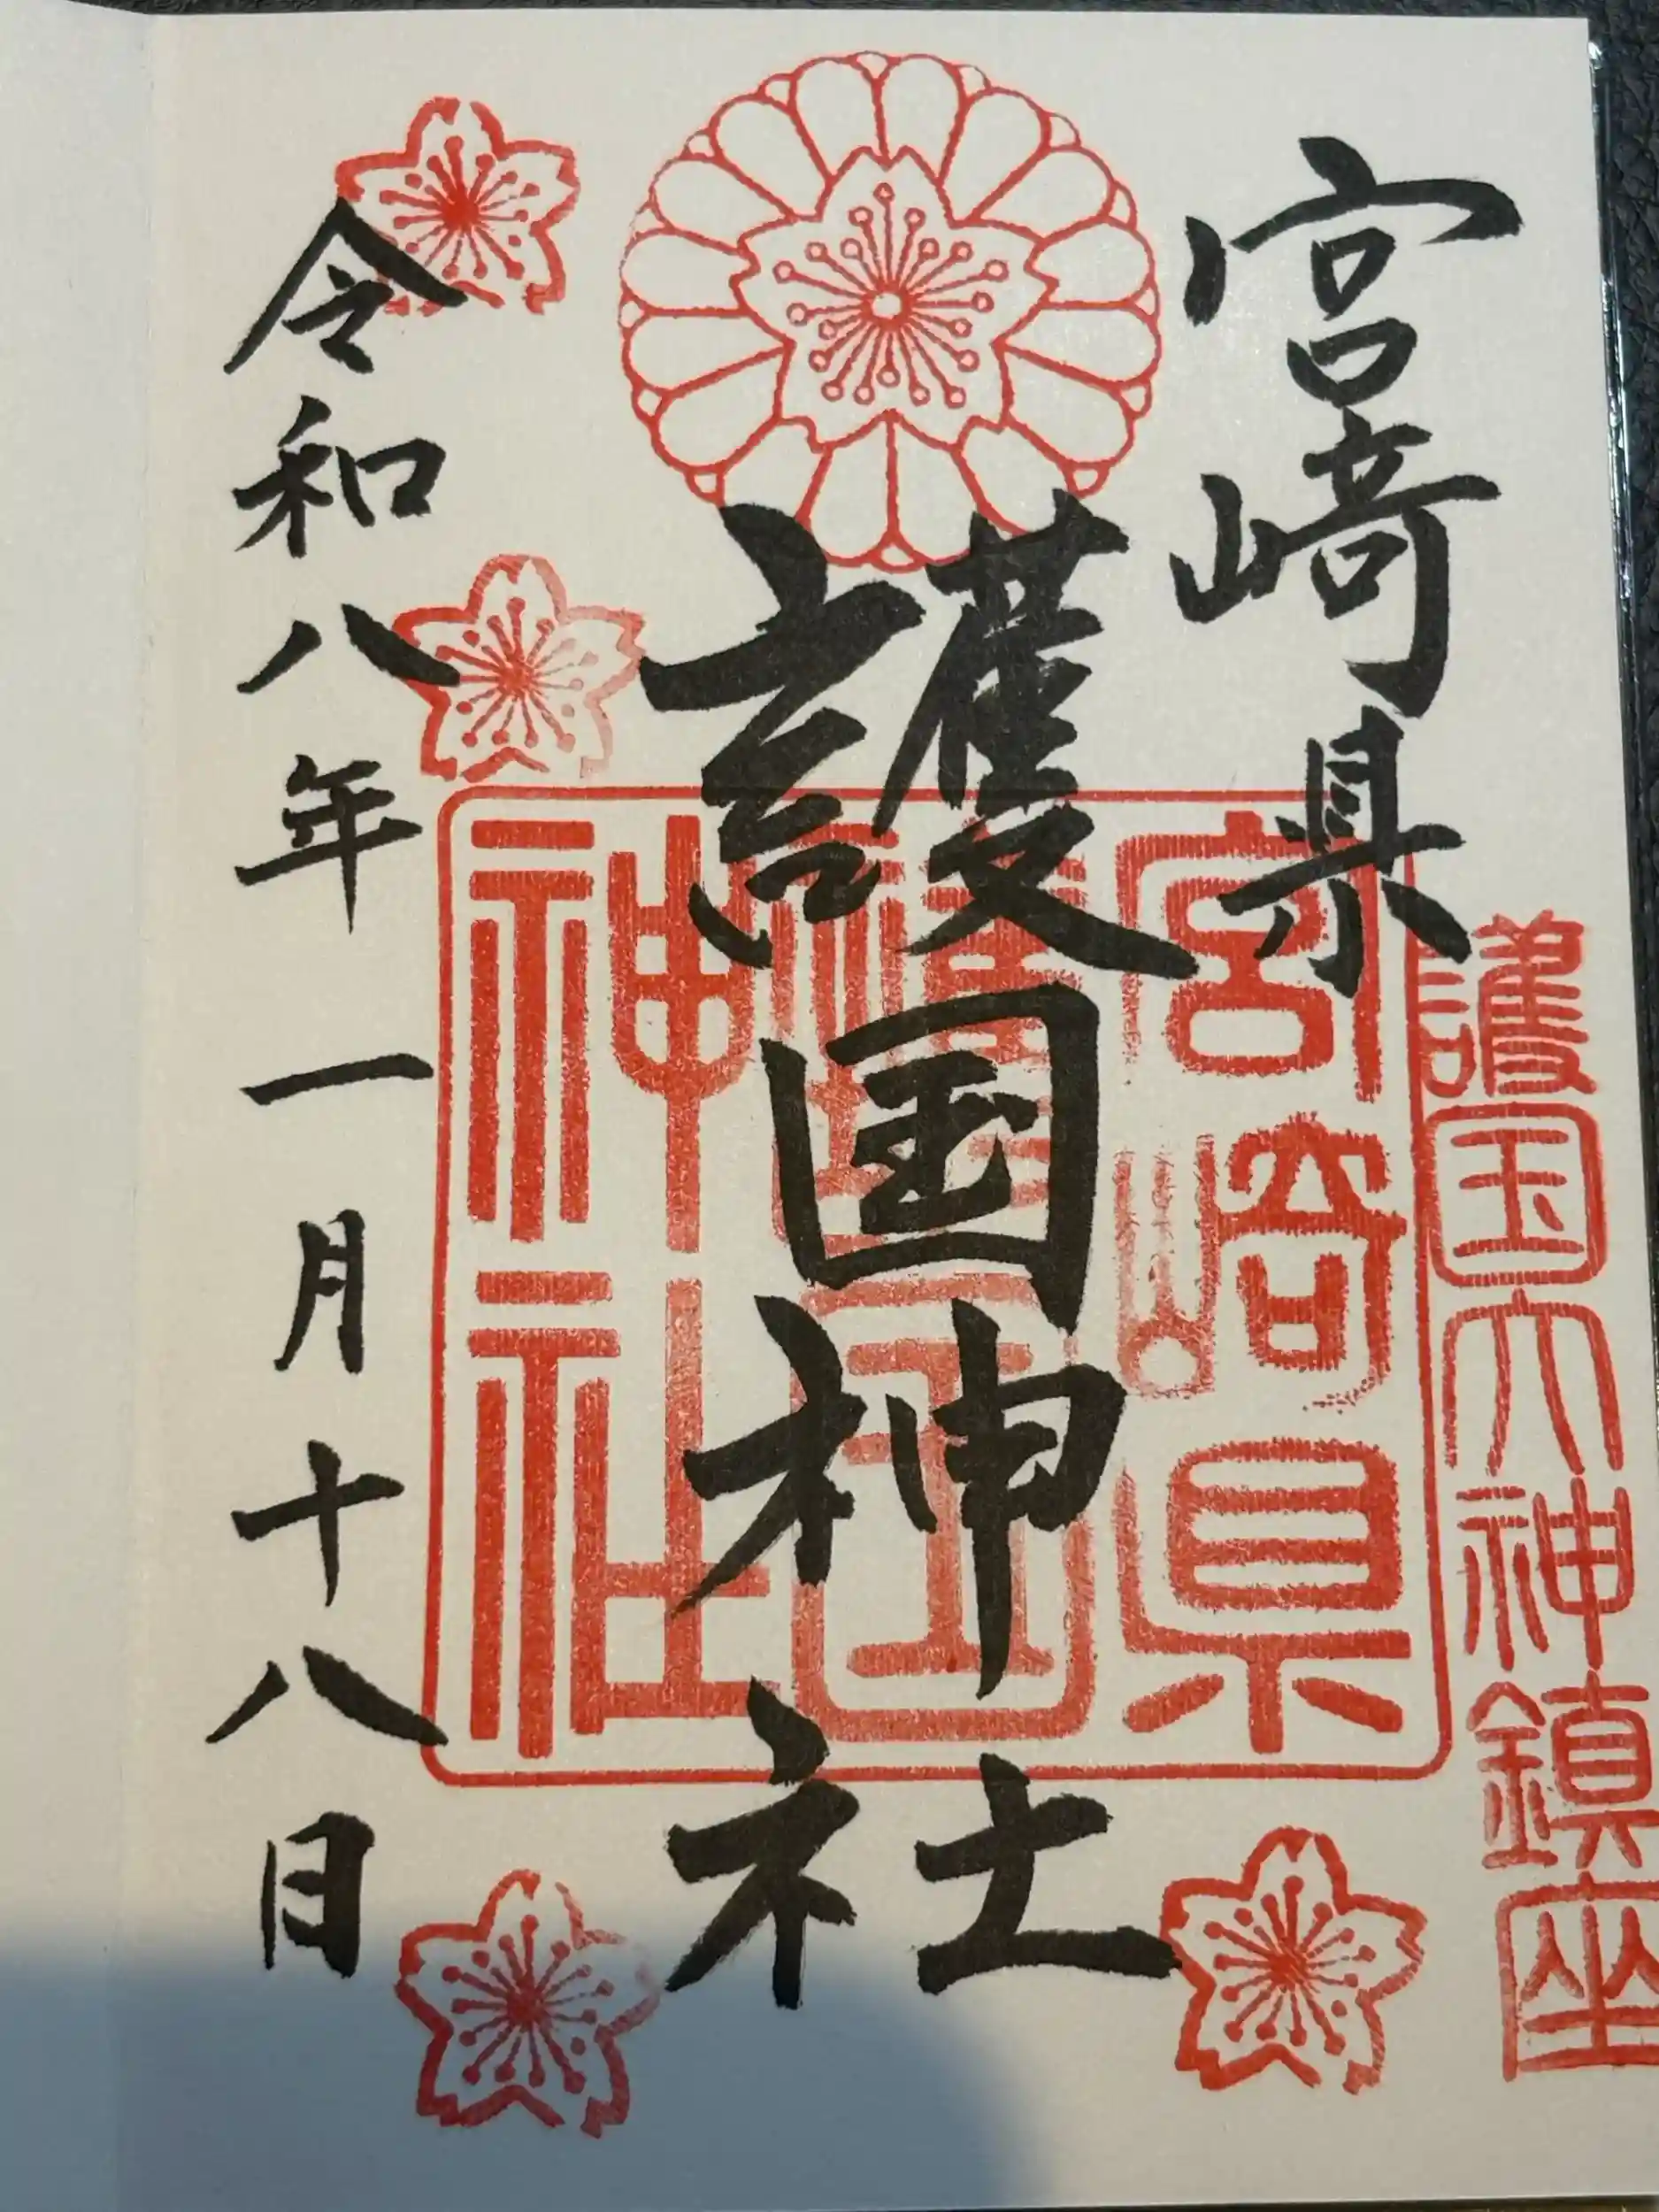 護国大神鎮座
宮﨑県
護国神社
宮崎県
護国
神社
令和八年一月十八日